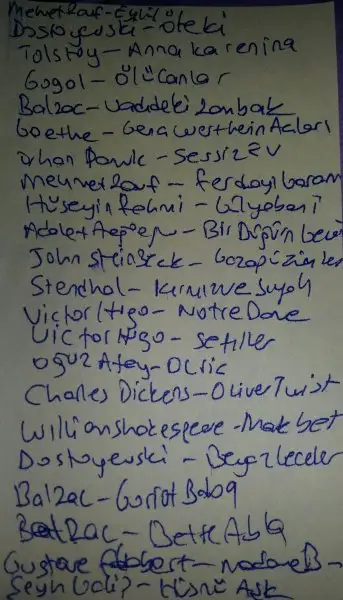 Mehmet Rauf - Eylül
Dostoyevski - Öteki
Tolstoy - Anna karenina
Gogol - ölü Canlar
Balzac - Vadideki Zambak
Goethe - Genç Werther'in Acıları
Orhan Pamuk - Sessiz Ev
Mehmet Rauf - Ferdayı Garam
Hüseyin Rahmi - Gulyabani
Adalet Ağaoğlu - Bir Düğün Gecesi
John Steinbeck - Gazap Üzümleri
Stendhal - Kırmızı ve Siyah
Victor Hugo - Notre Dame
Victor Hugo - Sefiller
Oğuz Atay - Olric
Charles Dickens - Oliver Twist
William Shakespeare - Makbet
Dostoyevski - Beyaz Geceler
Balzac - Goriot Baba
Balzac - Bette Abla
Gustave Flaubert - Madame B -
Şeyh Galip - Hüsnü Aşk